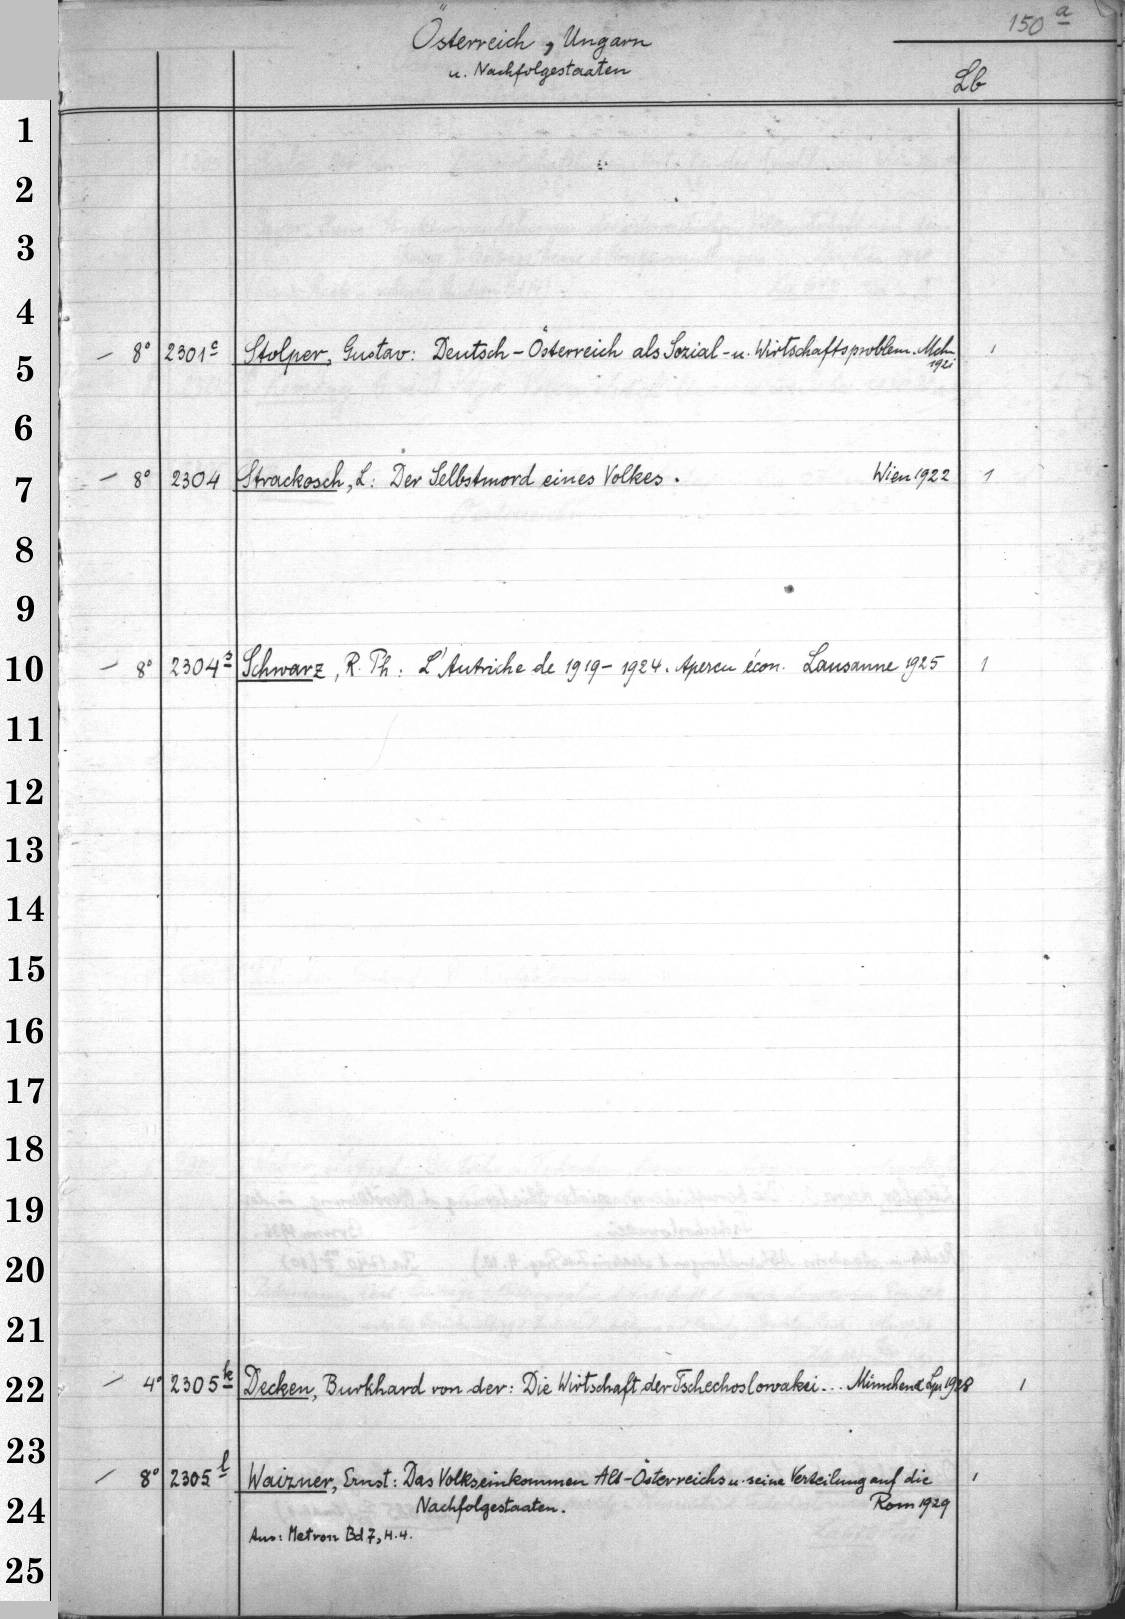 150 a
Österreich, Ungarn
u. Nachfolgestaaten
Lb
1
2
3
4
5
— 8° 2301c Stolper, Gustav: Deutsch-Österreich als Sozial- u. Wirtschaftsproblem. Mchn 1
1921
6
7
— 8° 2304 Strackosch, L: Der Selbstmord eines Volkes. Wien 1922 1
8
9
10
— 8° 2304 Schwarz, R. Th: L'Autriche de 1919-1924. Apercu écon. Lausanne 1925 1
11
12
13
14
15
16
17
18
19
20
21
22
— 4° 2305k Decken, Burkhard von der: Die Wirtschaft der Tschechoslowakei... München & Lpz 1928 1
23
— 8° 2305l Waizner, Ernst: Das Volkseinkommen Alt-Österreichs u. seine Verteilung auf die 1
24
Nachfolgestaaten. Rom 1929
Aus: Metron Bd 7, H. 4.
25